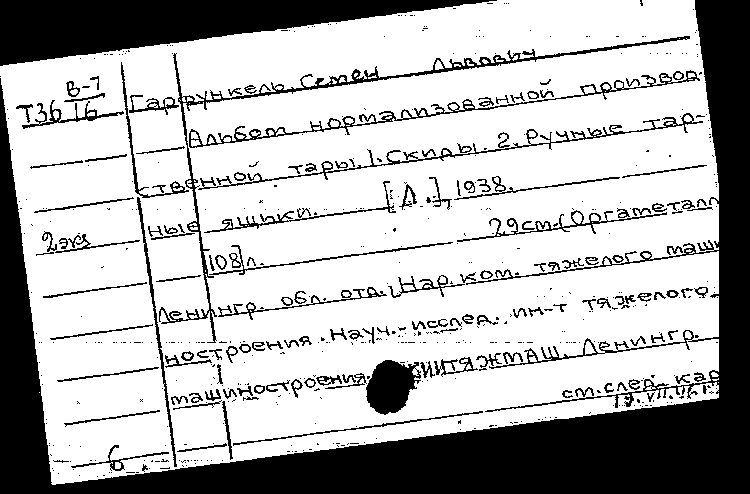 В-7
Т36 16
Гарфункель, Семен Львович
Альбом нормализованной производ-
ственной тары. 1. Скиды. 2. Ручные тар-
ные ящыки. [Л.], 1938.
2 экз
[108] л. 29 см. (Оргаметалл
Ленингр. обл. отд. Нар. ком. тяжелого маши
ностроения. Науч.-исслед. ин-т тяжелого
машиностроения НИИТЯЖМАШ. Ленингр.
см. след. кар
6